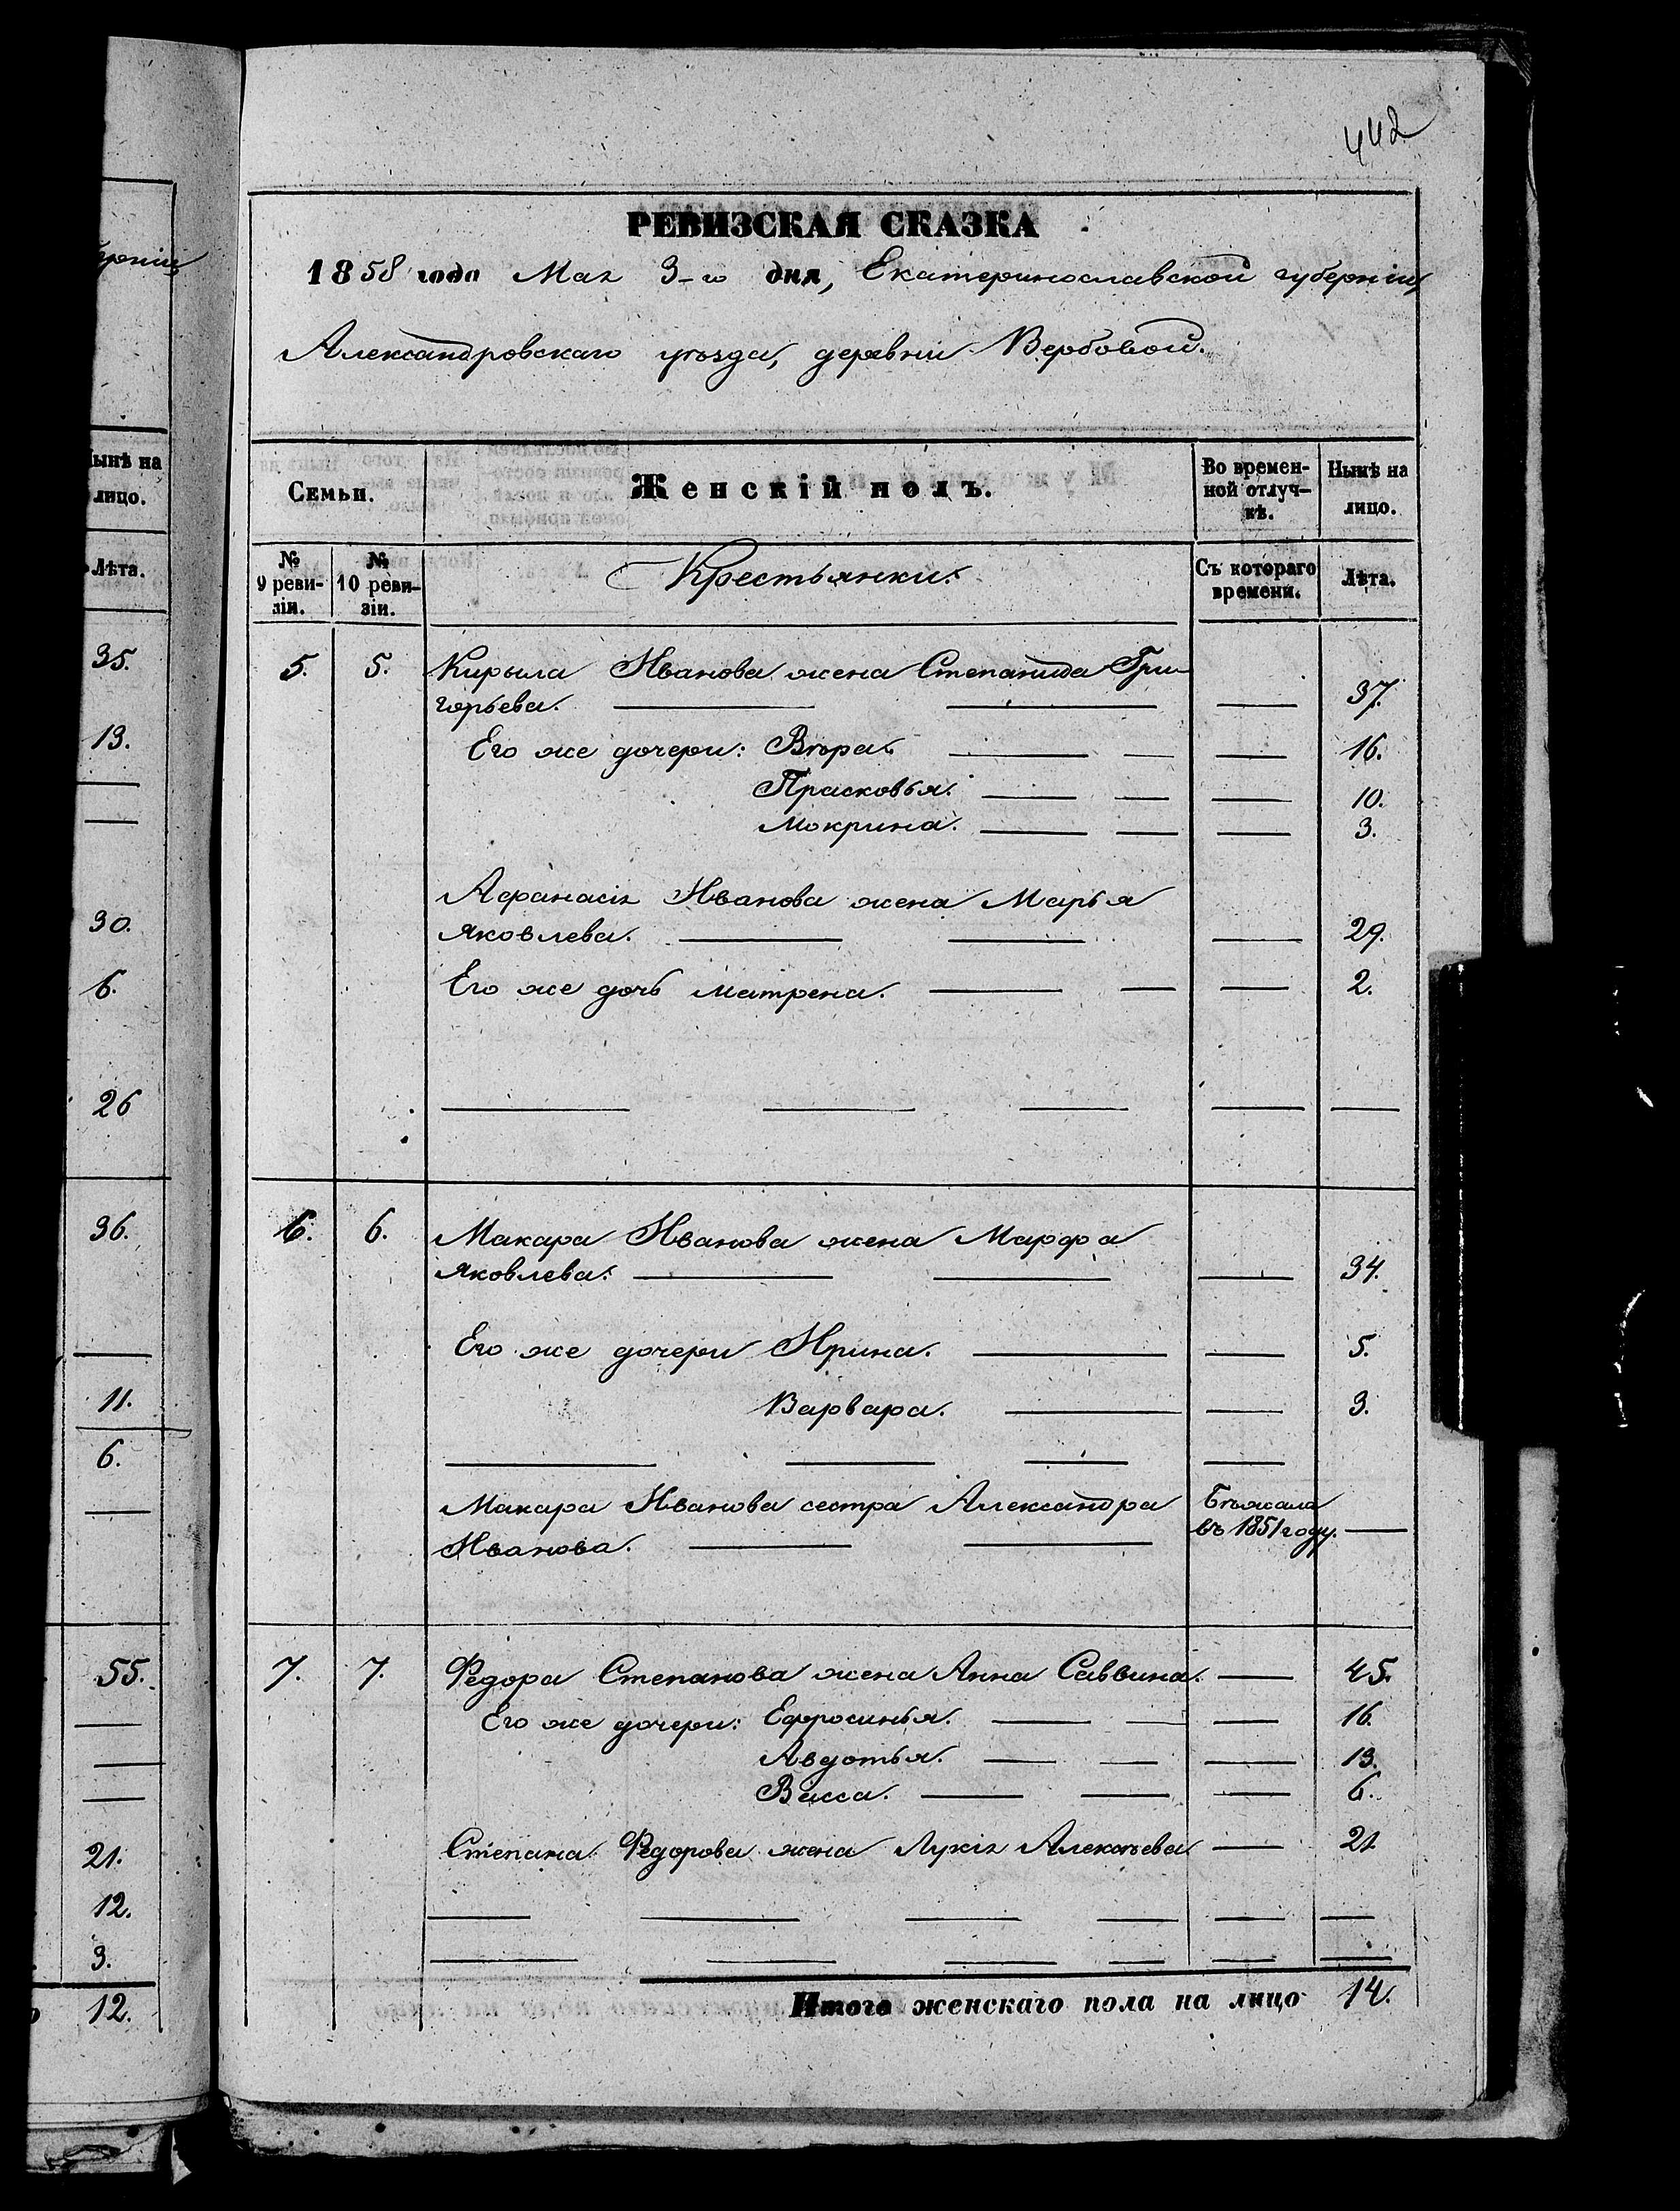 442
РЕВИЗСКАЯ СКАЗКА
1858 года Мая 3-го дня, Екатеринославской губерніи,
Александровскаго уѣзда, деревни Вербовой.
Семьи.
Женскій полъ.
Во времен-
ной отлуч-
кѣ.
Нынѣ на
лицо.
№
9 реви-
зіи.
№
10 реви-
зіи.
Крестьянки.
Съ котораго
времени.
Лѣта.
5. 5. Кирыла Иванова жена Степанида Гри-
горьева. 37.
Его же дочери: Вѣра. 16.
Прасковья. 10.
Мокрина. 3.
Афанасія Иванова жена Марья
Яковлева. 29.
Его же дочь Матрена. 2.
6. 6. Макара Иванова жена Марфа
Яковлева. 34.
Его же дочери Ирина. 5.
Варвара. 3.
Макара Иванова сестра Александра Бѣжала
Иванова. въ 1851 году.
7. 7. Федора Степанова жена Анна Саввина. 45.
Его же дочери: Ефросинья. 16.
Авдотья. 13.
Васса. 6.
Степана Федорова жена Лукія Алексѣева 21.
Итого женскаго пола на лицо 14.
лицо.
Лѣта.
35.
13.
30.
6.
26
36.
11.
6.
55.
21.
12.
3.
12.